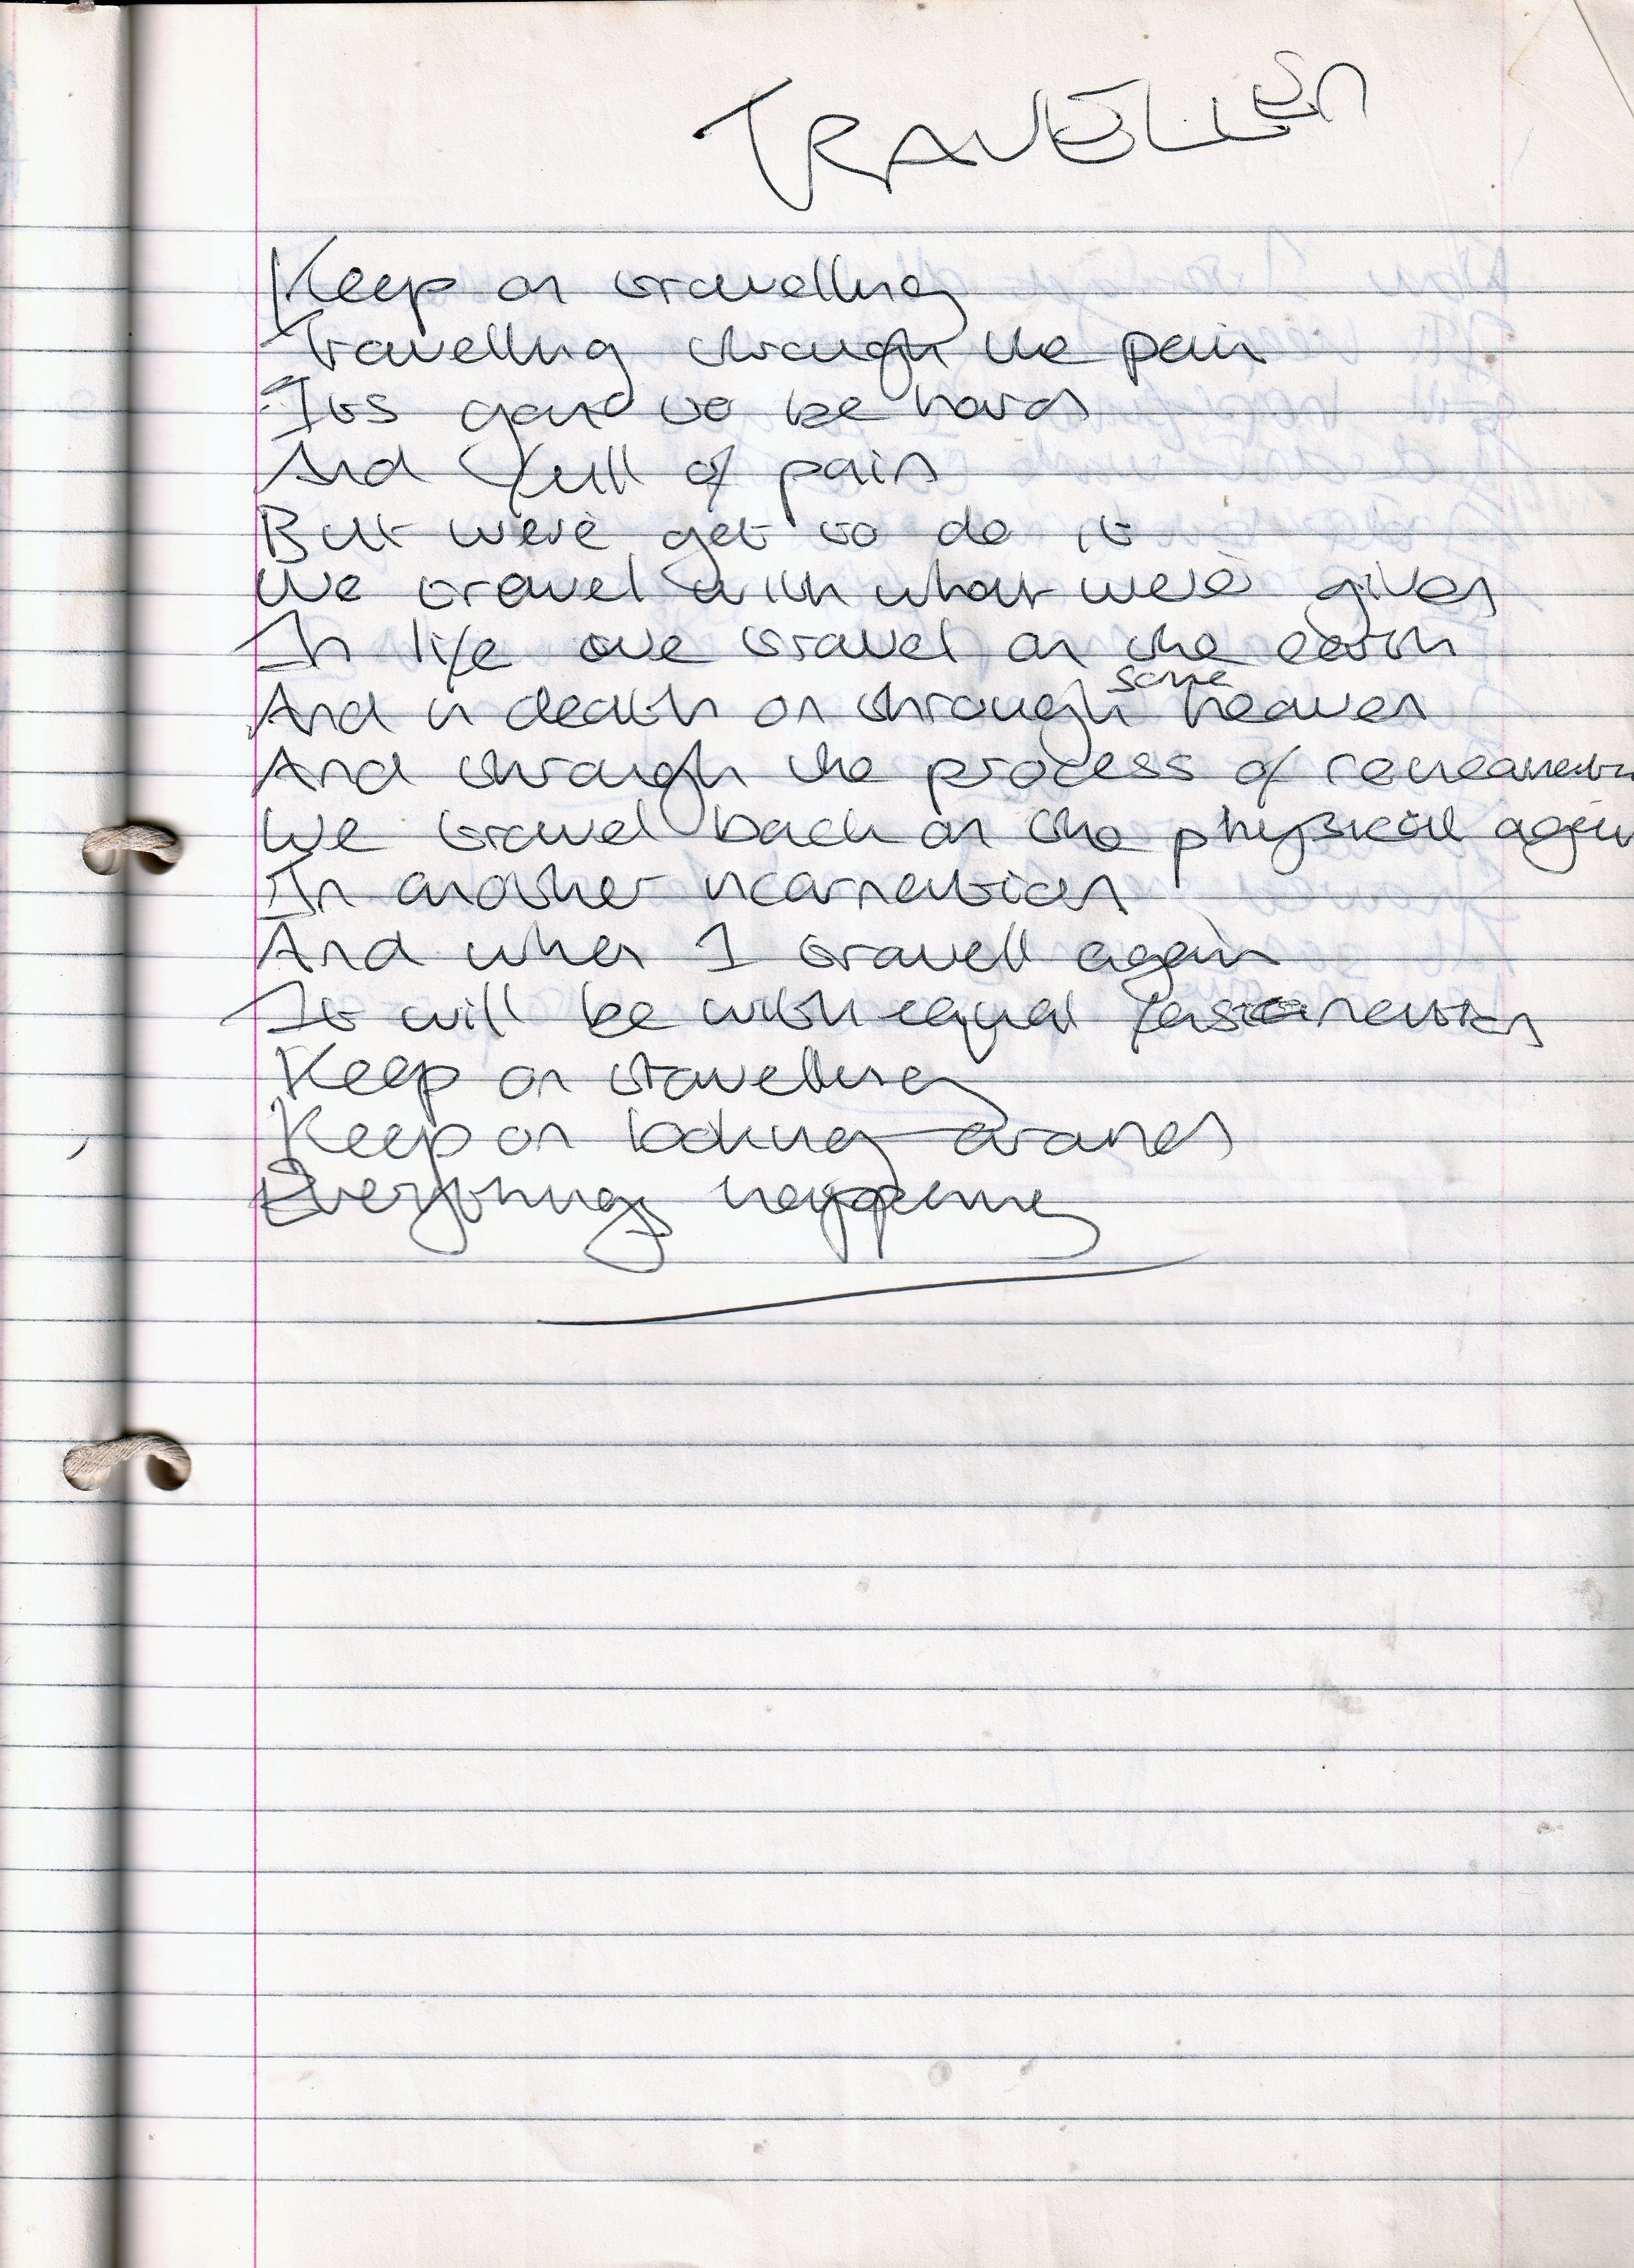 TRAVELLER
Keep on travelling
Travelling through the pain
Its gona to be hard
And full of pain
But we've got to do it
We travel with what we've given
In life we travel on the earth
And in death on through some heaven
And through the process of
We travel back on the physical again
In another incarnation
And when I travell again
It will be with equal
Keep on travelling
Keep on looking around
Everythings happening